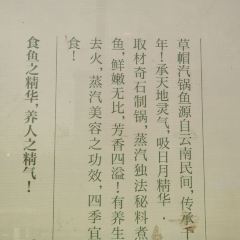 草帽汽锅鱼源自云南民间，传承千
年！承天地灵气，吸日月精华．
取材奇石制锅，蒸汽独法秘料煮
鱼，鲜嫩无比，芳香四溢！有养生
去火，蒸汽美容之功效，四季宜
食！
食鱼之精华，养人之精气！